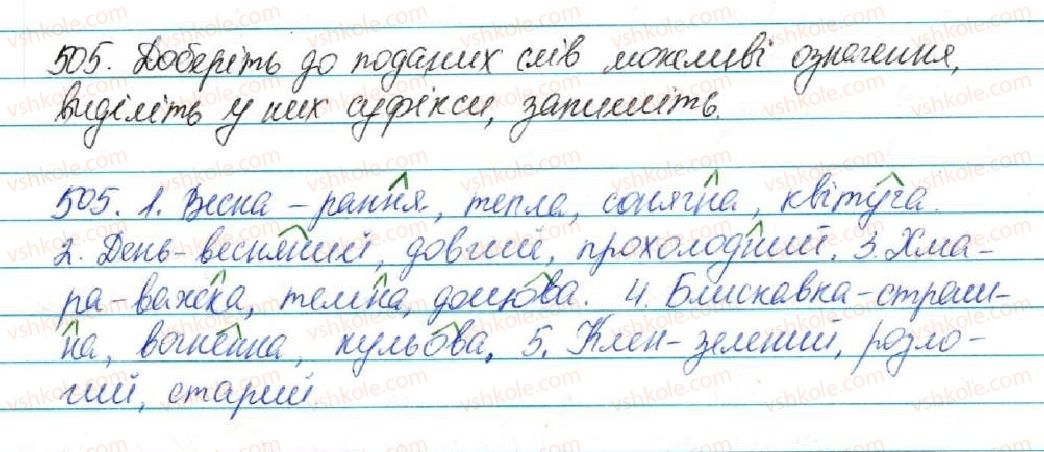 505. Доберіть до поданих слів можливі означення,
виділіть у них суфікси, запишіть.
505. 1. Весна – рання, тепла, сонячна, квітуча.
2. День – весняний, довгий, прохолодний. 3. Хма-
ра – важка, темна, дощова. 4. Блискавка – страш-
на, вогненна, кульова. 5. Клен – зелений, розло-
гий, старий.